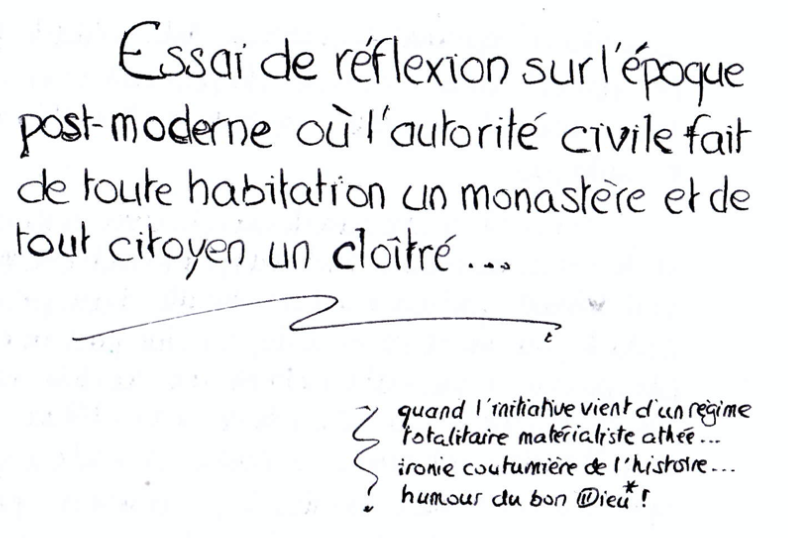 Essai de réflexion sur l'époque
post-moderne où l'autorité civile fait
de toute habitation un monastère et de
tout citoyen un cloîtré...
quand l'initiative vient d'un régime
totalitaire matérialiste athée...
ironie coutumière de l'histoire...
humour du bon Dieu*!